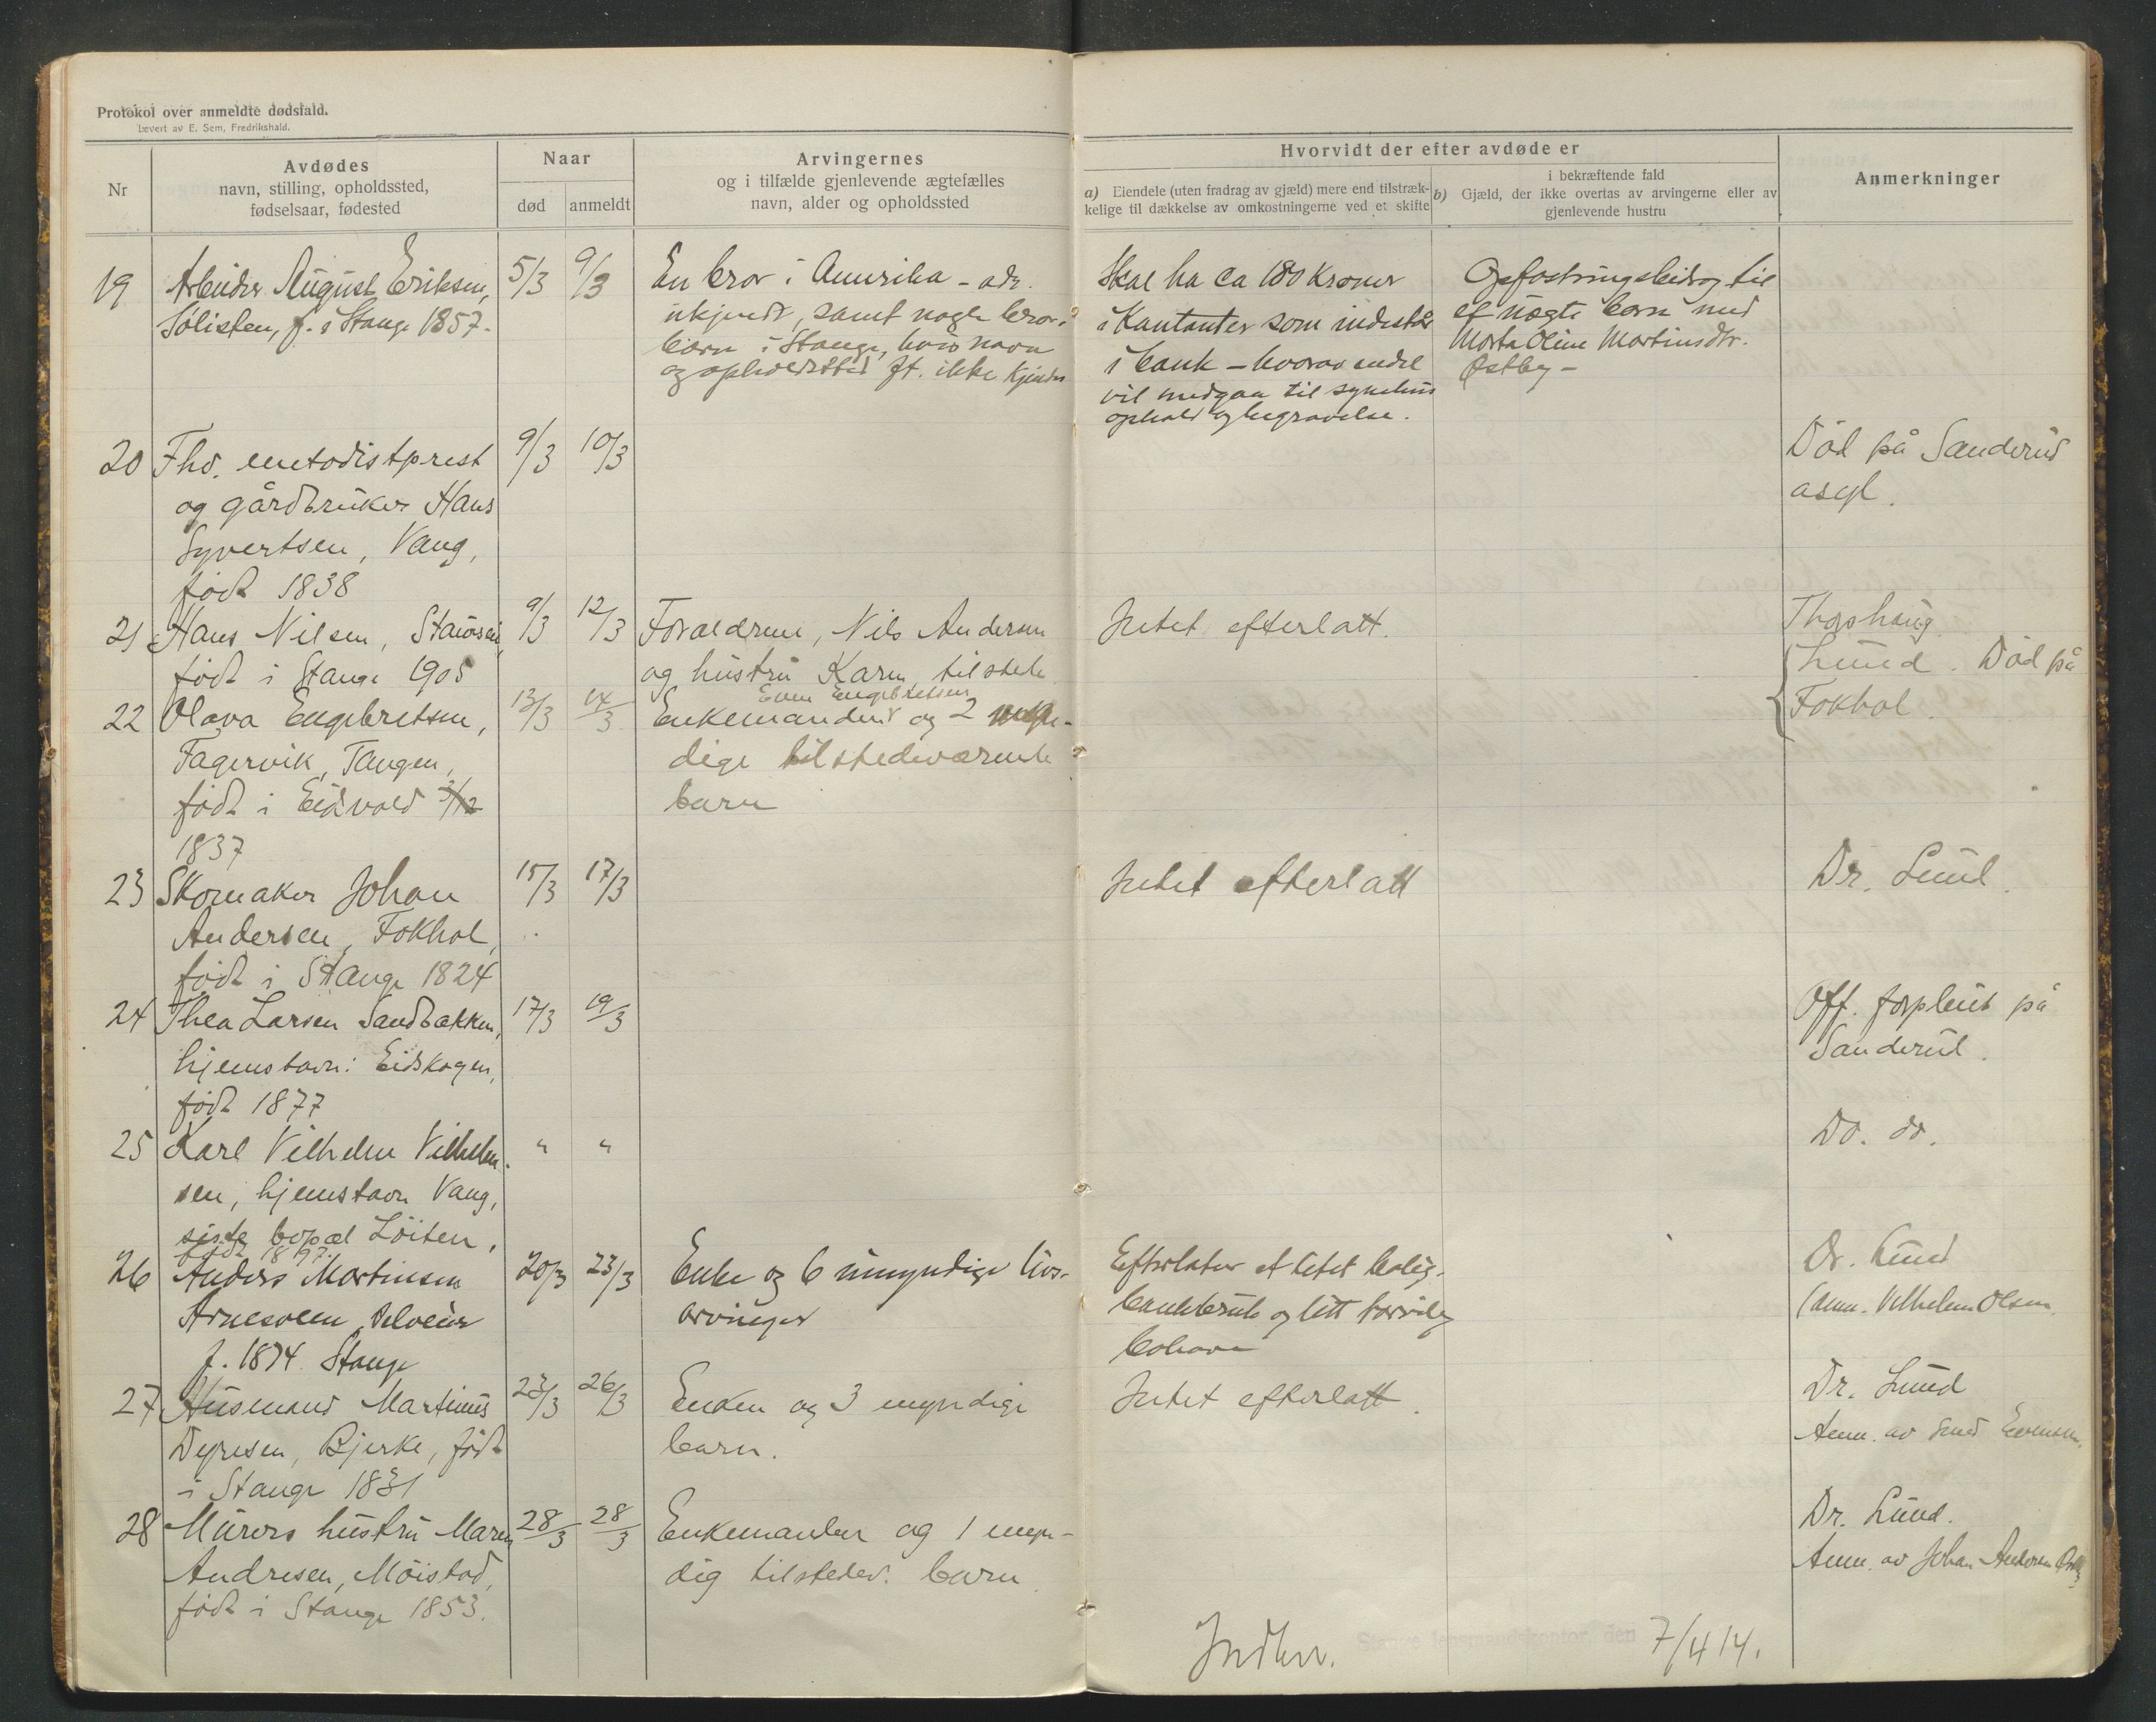 Protokol over anmeldte dødsfald.
Levert av E. Sem, Fredrikshald.
Nr
Avdødes
navn, stilling, opholdssted,
fødselsaar, fødested
Naar
død
anmeldt
Arvingernes
og i tilfælde gjenlevende ægtefælles
navn, alder og opholdssted
Hvorvidt der efter avdøde er
a) Eiendele (uten fradrag av gjæld) mere end tilstræk-
kelige til dækkelse av omkostningerne ved et skifte
i bekræftende fald
b) Gjæld, der ikke overtas av arvingerne eller av
gjenlevende hustru
Anmerkninger
19
Arbeider August Eriksen,
Sølisten, f. i Stange 1857.
5/3
9/3
En bror i Amerika - adr.
ukjendt, samt nogle bror-
børn i Stange, hvis navn
og opholdssted ft. ikke kjendes
Skal ha ca 180 kroner
i Kontanter som indestår
i bank - hvorav endel
vil medgaa til sykehus
ophold og begravelse.
Opfostringsbidrag til
et uægte barn med
Marta Oline Martinsdtr.
Østby -
20
Fhv. metodistprest
og gårdbruker Hans
Syvertsen, Vang,
født 1838
9/3
10/3
Död på Sanderud
asyl.
21
Hans Nilsen,
født i Stange 1905
9/3
12/3
Forældrene, Nils Andersen
og hustru Karen, tilstede
Intet efterlatt.
Thorshaug.
22
Olava Engebretsen,
Fagervik, Tangen,
født i Eidsvold 3/12
1837
13/3
14/3
Even Engebretsen
Enkemanden og 2 myn-
dige tilstedeværende
barn
Lund. Död på
Fokhol.
23
Skomaker Johan
Andersen, Fokhol,
født i Stange 1824
15/3
17/3
Intet efterlatt
Dr. Lund.
24
Thea Larsen Sandbakken,
hjemstavn: Eidskogen,
født 1877
17/3
19/3
Off. forpleiet på
Sanderud.
25
Karl Vilhelm Vilhelm-
sen, hjemstavn Vang,
siste bopæl Löiten,
født 1897.
"
"
Do. do.
26
Anders Martinsen
Arnesveen
f. 1874 Stange
20/3
23/3
Enke og 6 umyndige livs-
arvinger
Efterlater et litet bolig-
og litt
bohave
Dr. Lund
(anm. Vilhelm Olsen.
27
Husmand Martinus
Dyresen, Bjerke, født
i Stange 1831
23/3
26/3
Enken og 3 myndige
barn.
Intet efterlatt.
Dr. Lund
Anm. av Evensen.
28
Murers hustru Maren
Andresen, Möistad,
født i Stange 1853.
28/3
28/3
Enkemanden og 1 myn-
dig tilstedev. barn.
Dr. Lund.
Anm. av Johan Andersen
Indlev. Stange lensmandskontor, den 7/4 14.